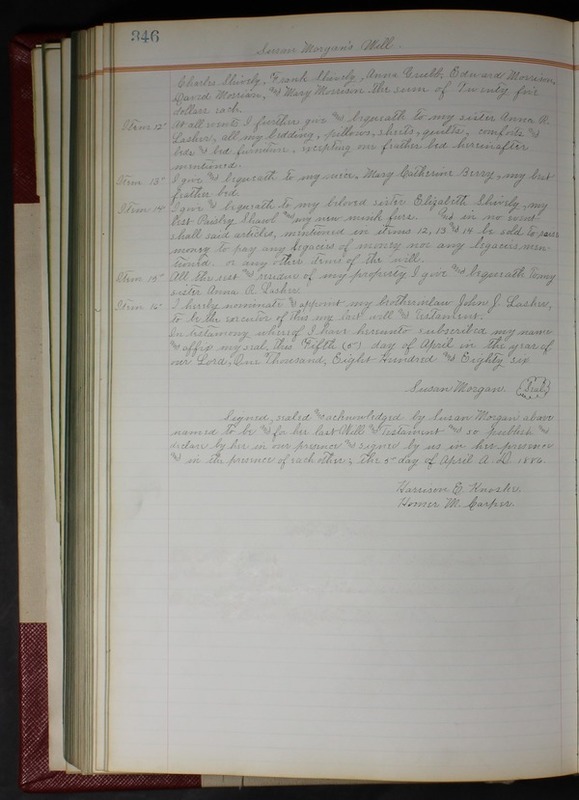 346
Susan Morgan's Will.
Charles Shively, Frank Shively, Anna Grubb, Edward Morrison,
David Morrison, and Mary Morrison the sum of Twenty five
dollars each.
Item 12" At all events I further give and bequeath to my sister Anna R.
Lasher, all my bedding, pillows, sheets, quilts, comforts and
beds and bed furniture, excepting one feather bed hereinafter
mentioned.
Item 13" I give and bequeath to my niece, Mary Catherine Berry, my best
feather bed.
Item 14" I give and bequeath to my beloved sister Elizabeth Shively, my
best Paisley Shawl and my new mink furs. and in no event
shall said articles, mentioned in items 12, 13 and 14 be sold to
money to pay any legacies of money nor any legacies men-
tioned. or any other item of the will.
Item 15" All the rest and residue of my property I give and bequeath to my
sister Anna R. Lasher.
Item 16" I hereby nominate and appoint my brother in law John J. Lasher,
to be the executor of this my last will and Testament.
In testimony whereof I have hereunto subscribed my name
and affix my seal, this Fifth (5") day of April in the year of
our Lord, One Thousand, Eight Hundred and Eighty six
Susan Morgan. Seal
Signed, sealed and acknowledged by Susan Morgan above
named to be and for her last Will and Testament and so publish and
declare by her in our presence and signed by us in her presence
and in the presence of each other, the 5" day of April A. D. 1886.
Harrison E.
Homer M. Carper.